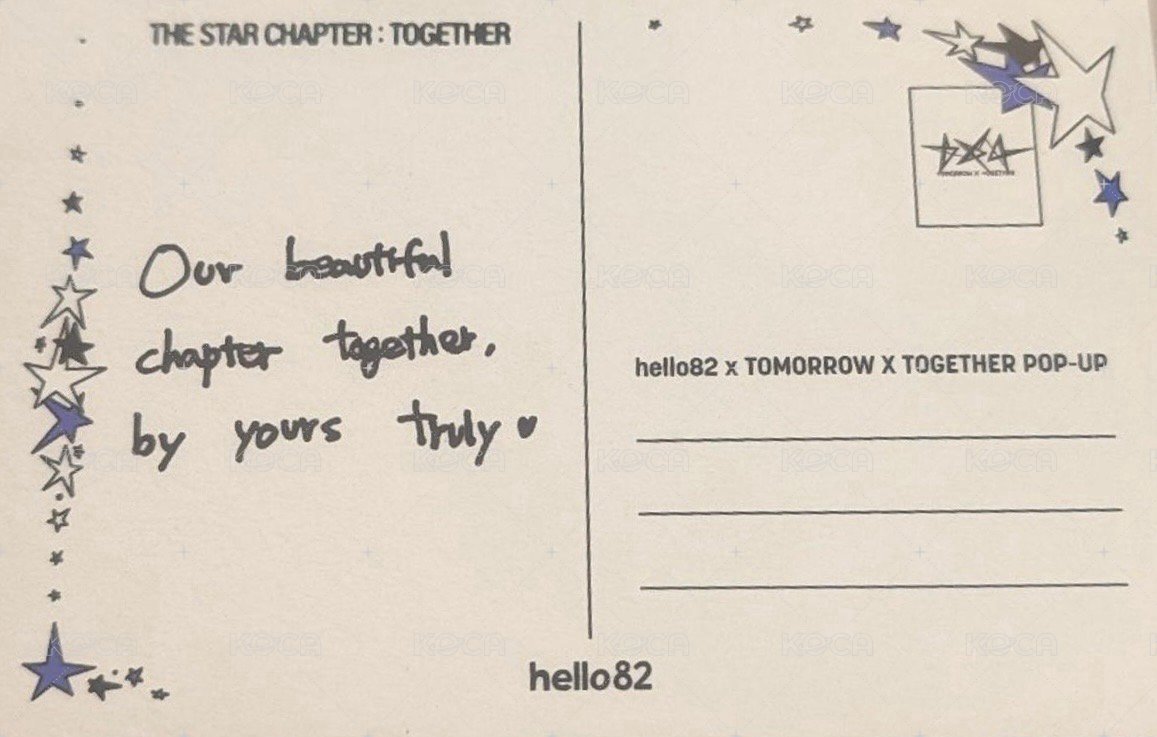 THE STAR CHAPTER : TOGETHER
Our beautiful
chapter together,
by yours truly ♥
TOMORROW X TOGETHER
hello82 x TOMORROW X TOGETHER POP-UP
hello82
KOCA